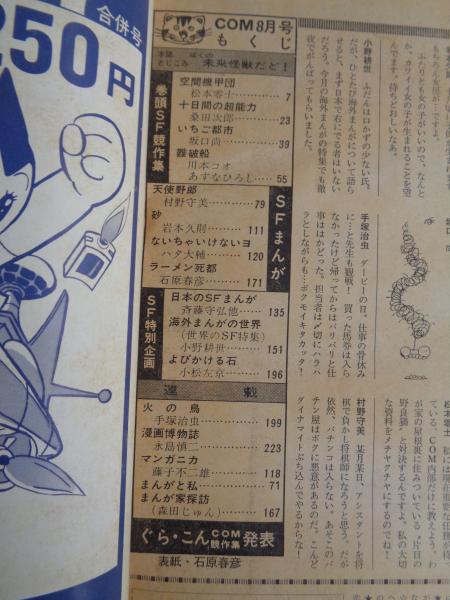 合併号
250円
COM8月号
もくじ
本誌とじこみ ぼくの未来怪獣だど!
巻頭SF競作集
空間機甲団
松本零士 7
十日間の超能力
桑田次郎 23
いちご都市
坂口尚 39
難破船
川本コオ
あすなひろし 55
SFまんが
天使野郎
村野守美 79
砂
岩本久則 111
ないちゃいけないヨ
ハタ大輔 120
ラーメン死都
石原春彦 171
SF特別企画
日本のSFまんが
斉藤守弘他 135
海外まんがの世界
(世界のSF特集)
小野耕世 151
よびかける石
小松左京 196
連載
火の鳥
手塚治虫 199
漫画博物誌
永島慎二 223
マンガニカ
藤子不二雄 118
まんがと私 71
まんが家探訪
(森田じゅん) 167
ぐら・こん COM競作集 発表
表紙・石原春彦
もちろん女房が)ですよ。
ふたりとも女の子がいいので、なんと
か、カワイイ女の子が生まれることを望
んでます。待ちどおしいなあ。
小野耕世 ふだんは口かずの少ない氏。
だが、ひとたび海外まんがについて語ら
せると、まず日本で右にでる者はいない
だろう。今月の海外まんがの特集でも徹
夜でがんばってもらいました。
手塚治虫 ダービーの日。仕事の骨休み
に…と先生も観戦! 買った馬券は入ら
なかったけど帰ってからはバリバリと仕
事ははかどった。担当者は〆切にハラハ
ラとしながらも…ボクモイキタカッタ!
ている。COM内部だけに教えよう。わ
が家の屋根裏に住みついている〝片目の
野良猫〟と対決するんですよ。私の大切
な資料をメチャクチャにするのでね!
村野守美 某月某日、アシスタントを将
棋で負かし将棋師になろうと思う。だが
依然、パチンコは入らない。あそこのパ
チン屋はボクに悪意があるのだ。こんど
ダイナマイトぶち込んでやるからな!